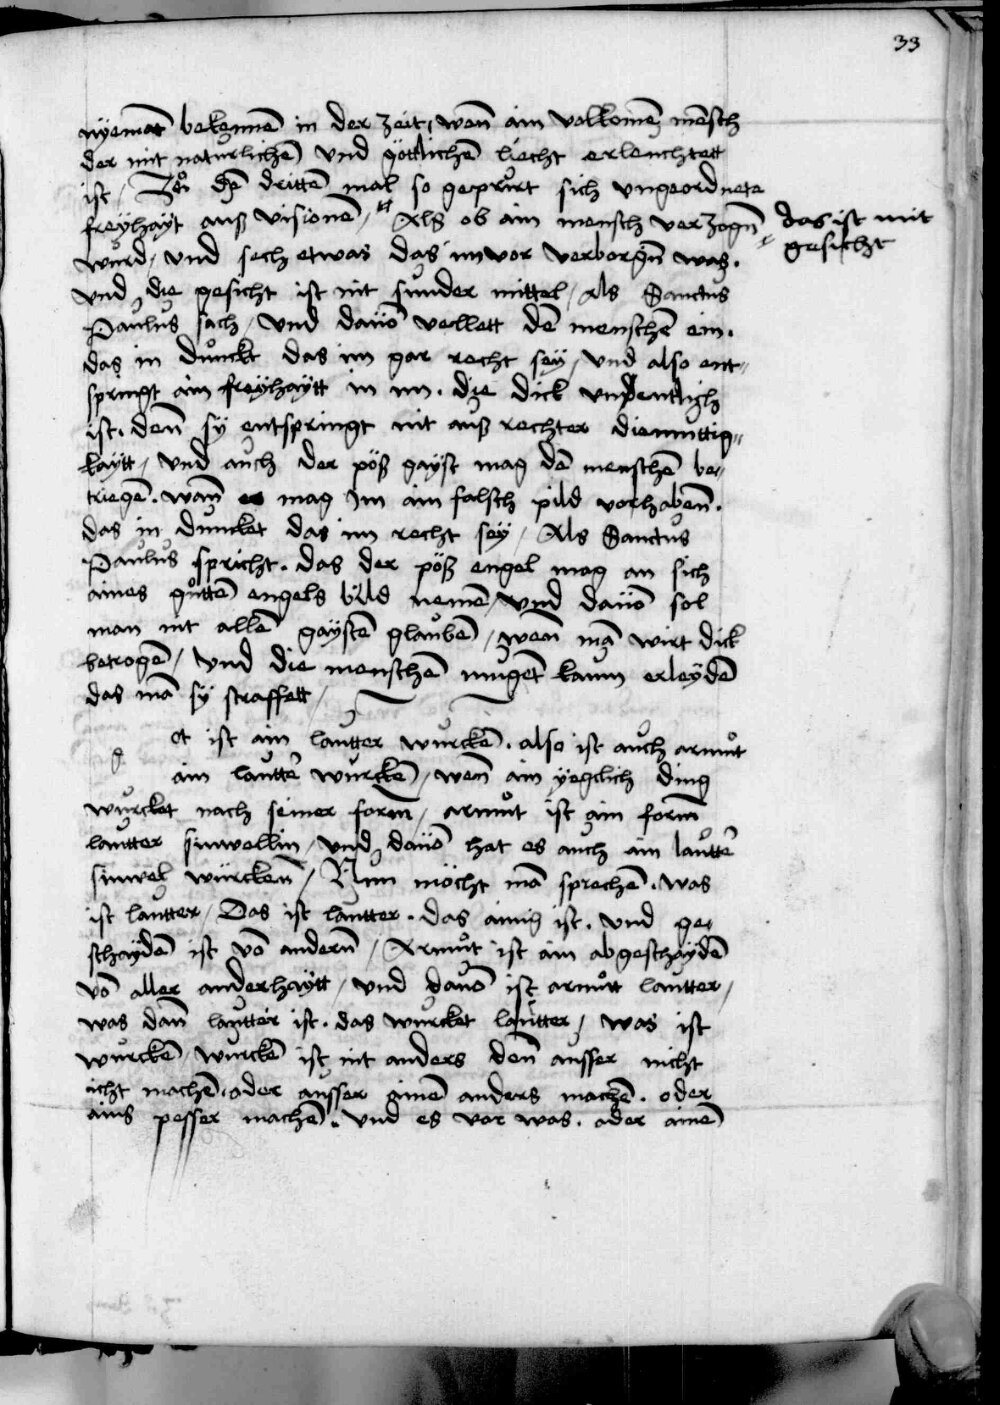 33
nyemāt bekennē in der zeit, wen̄ ain volkomē mensch
der mit naturlichē vnd göttlichen liecht erleuchtett
ist, Zů dē drittē mal so gepůrt sich vngeordnete
freyhayt auß visionē, Als ob ain mensch verzogn̄
das ist mit
gesicht
wurd, vnd sech etwas das im vor verborgn̄ was.
vnd die gesicht ist nit sunder mittel, Als Sanctus
Paulus sach, vnd dauō vellett dē menschē ein.
das in důnckt das im gar recht sey, vnd also ent-
springt ain freyhaytt in im. die dick vnordenlich
ist. den̄ sy entspringt nit auß rechter diemuttig-
kaytt, vnd auch der pöß gayst mag dē menschē be-
triegē. wan̄ er mag im ain falsch pild vorhaben̄.
das in duncket das im recht sey, Als Sanctus
Paulus spricht. das der pöß engel mag an sich
aines gůttē engels bild nemē, vnd dauō sol
man nit allē gaystē glaubē, wen̄ mā wirt dick
betrogē, vnd die menschē mugēt kaum erleydē
das mā sy straffett,
ot ist ain lautter wurckē. also ist auch armůt
g
ain lautte᷑ wurckē, wen̄ ain yeglich ding
wurcket nach seiner form̄, armůt ist ain form̄
lautter sinwellin, vnd dauō hat es auch ain lautte᷑
sinwel würcken̄, Nun möcht mā sprechē. was
ist lautter, Das ist lautter. das ainig ist. vnd ge-
schaydē ist vō andern̄, Armůt ist ain abgeschaydē
vō aller anderhaytt, vnd dauō ist armůtt lautter,
was dan̄ lautter ist. das wurcket lautter, was ist
wurckē, wurckē ist nit anders den̄ ausser nicht
icht machē. oder ausser ainē anders machē. oder
ains pesser machē. vnd es vor was. oder ainē